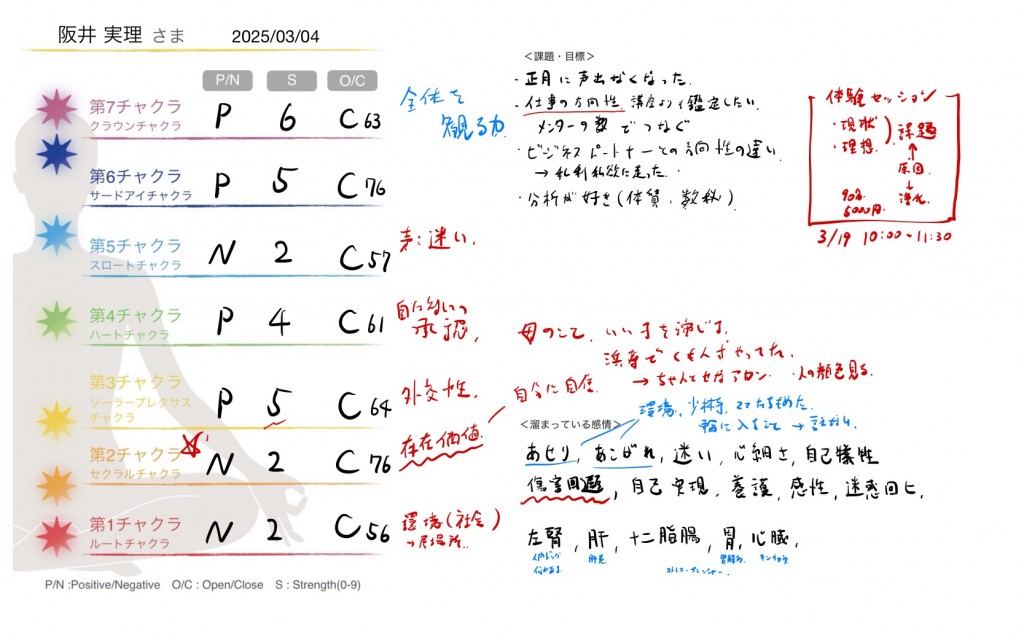 阪井 実理 さま 2025/03/04
P/N S O/C
第7チャクラ
クラウンチャクラ
P 6 C 63
全体を
観る力
第6チャクラ
サードアイチャクラ
P 5 C 76
第5チャクラ
スロートチャクラ
N 2 C 57
声:迷い.
第4チャクラ
ハートチャクラ
P 4 C 61
承認,
第3チャクラ
ソーラープレクサス
チャクラ
P 5 C 64
外交性.
第2チャクラ
セクラルチャクラ
N 2 C 76
存在価値.
自分に自信
第1チャクラ
ルートチャクラ
N 2 C 56
環境(社会)
→居場所..
P/N :Positive/Negative O/C : Open/Close S : Strength(0-9)
<課題・目標>
・正月に声出なくなった.
・仕事の方向性. 講座よりも鑑定したい.
メンターの数でつなぐ
・ビジネスパートナーとの方向性の違い.
→ 私利私欲に走った.
・分析が好き(体質, 数秘).
体験セッション
・現状
・理想.
課題
原因
浄化.
90分
5000円.
3/19 10:00~11:30
母のこと. いい子を演じる.
→ ちゃんとせなアカン. ・人の顔色見る.
環境, 少林寺,
輪に入ること →
<溜まっている感情>
あせり, あこがれ, 迷い, 心細さ, 自己犠牲
傷害回避, 自己実現, 養護, 感性, 迷惑回ヒ,
左腎, 肝, 十二脂腸, 胃, 心臓,
ストレス・プレッシャー.